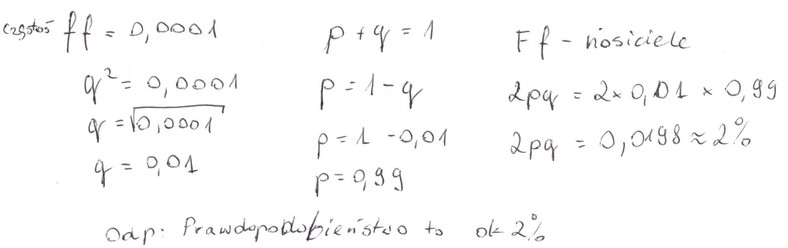 częstość ff = 0,0001
q² = 0,0001
q = √0,0001
q = 0,01
p + q = 1
p = 1 - q
p = 1 - 0,01
p = 0,99
Ff - nosiciele
2pq = 2 × 0,01 × 0,99
2pq = 0,0198 ≈ 2%
Odp: Prawdopodobieństwo to ok 2%